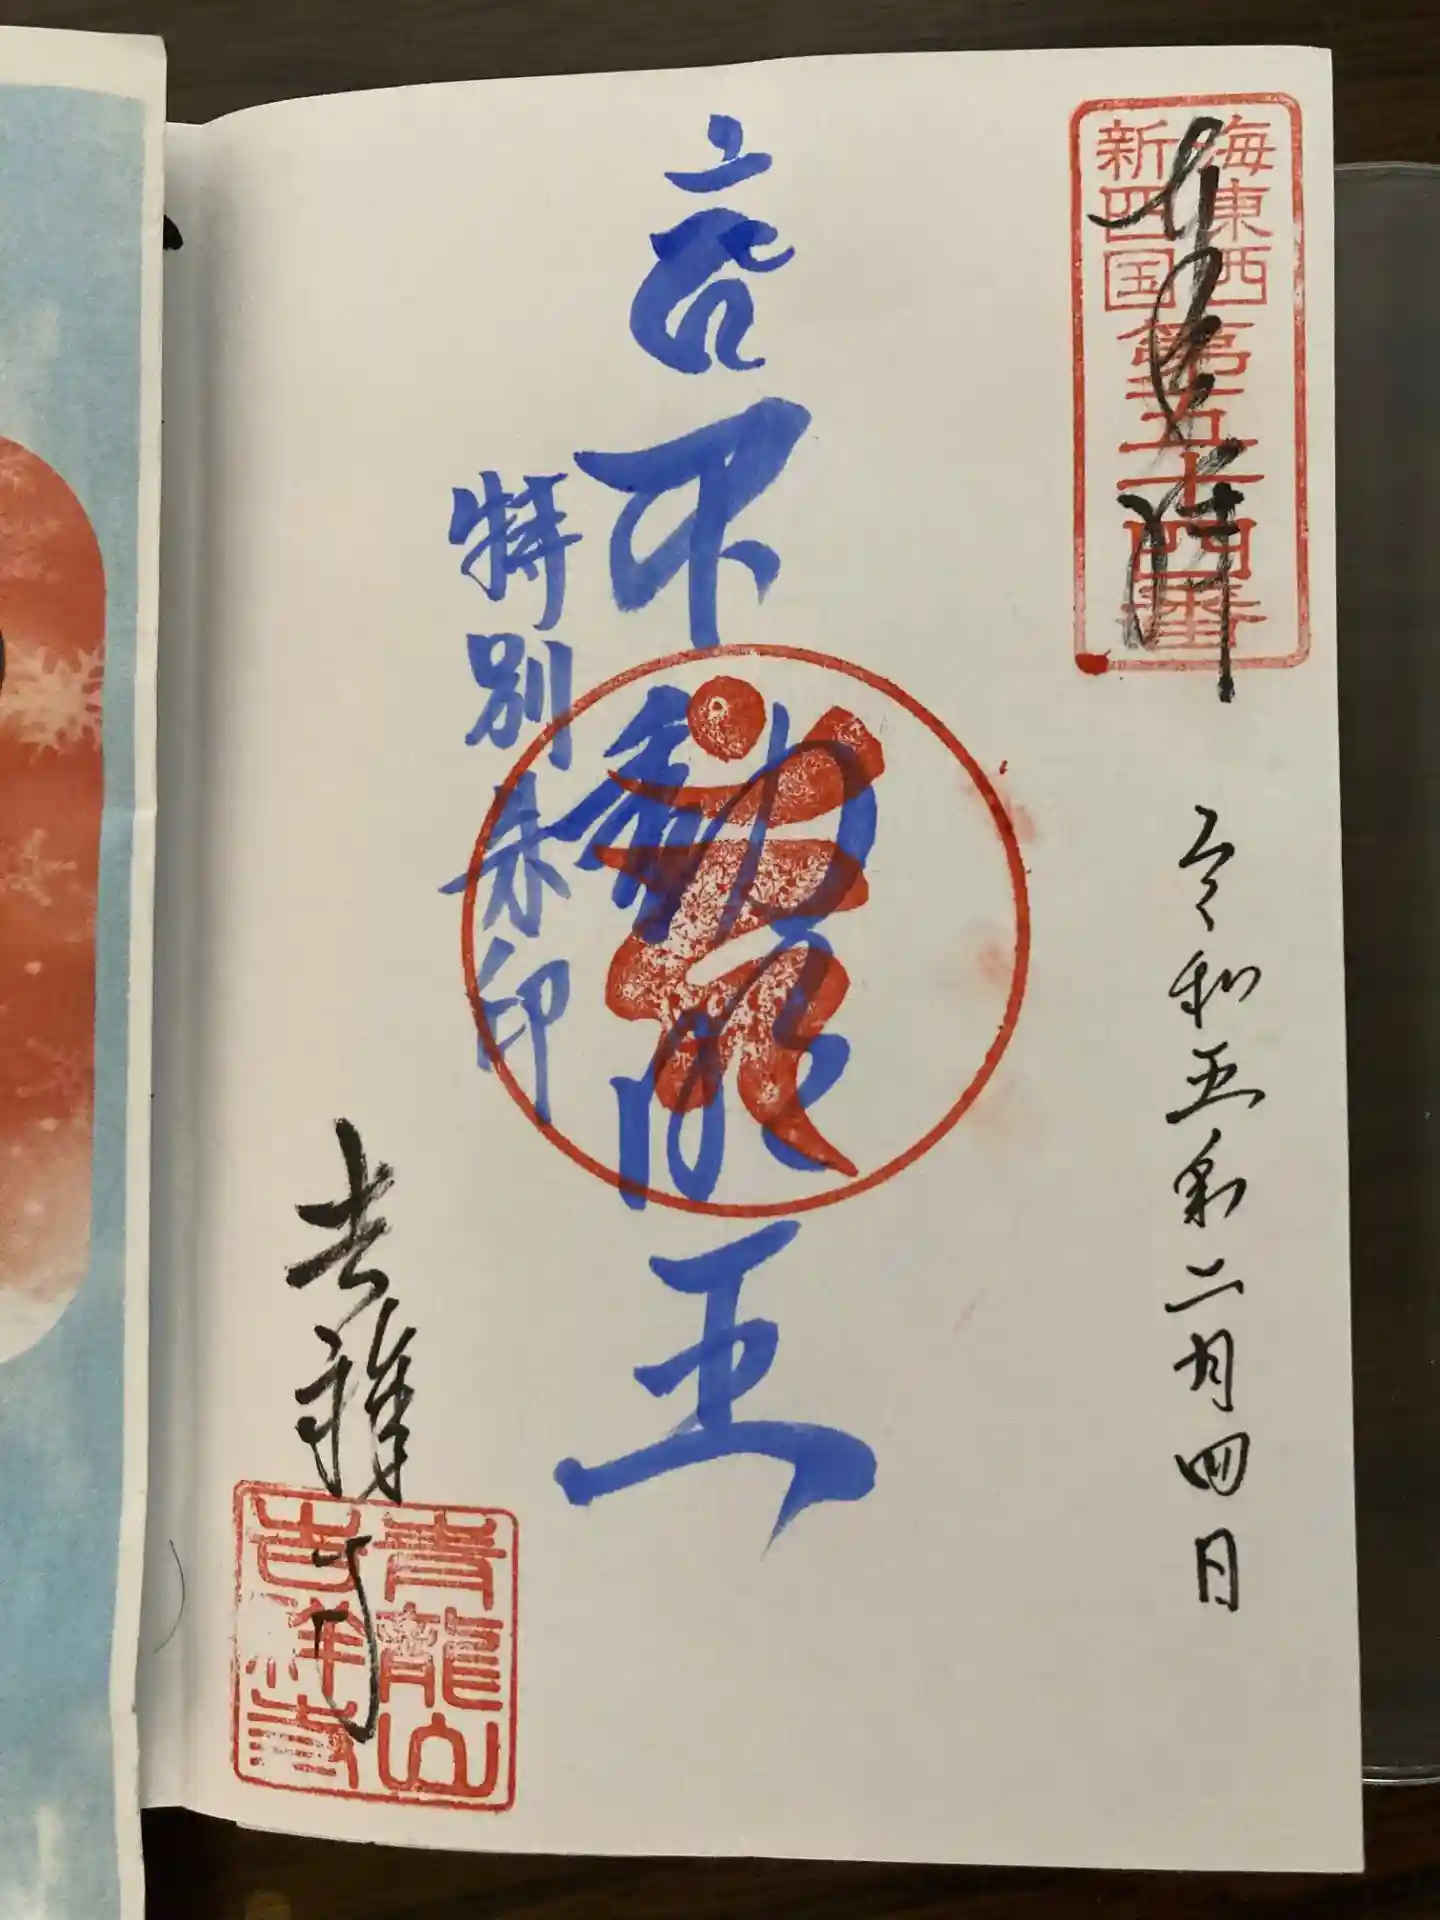 奉拝
海東西
新四国
第五十四番
令和五年二月四日
不動明王
特別朱印
吉祥寺
青龍山
吉祥寺